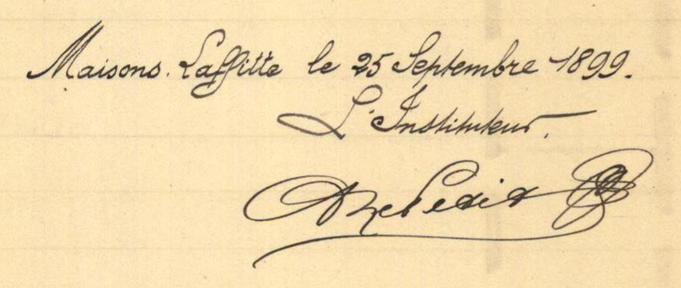 Maisons. Laffitte le 25 Septembre 1899.
L'Instituteur.